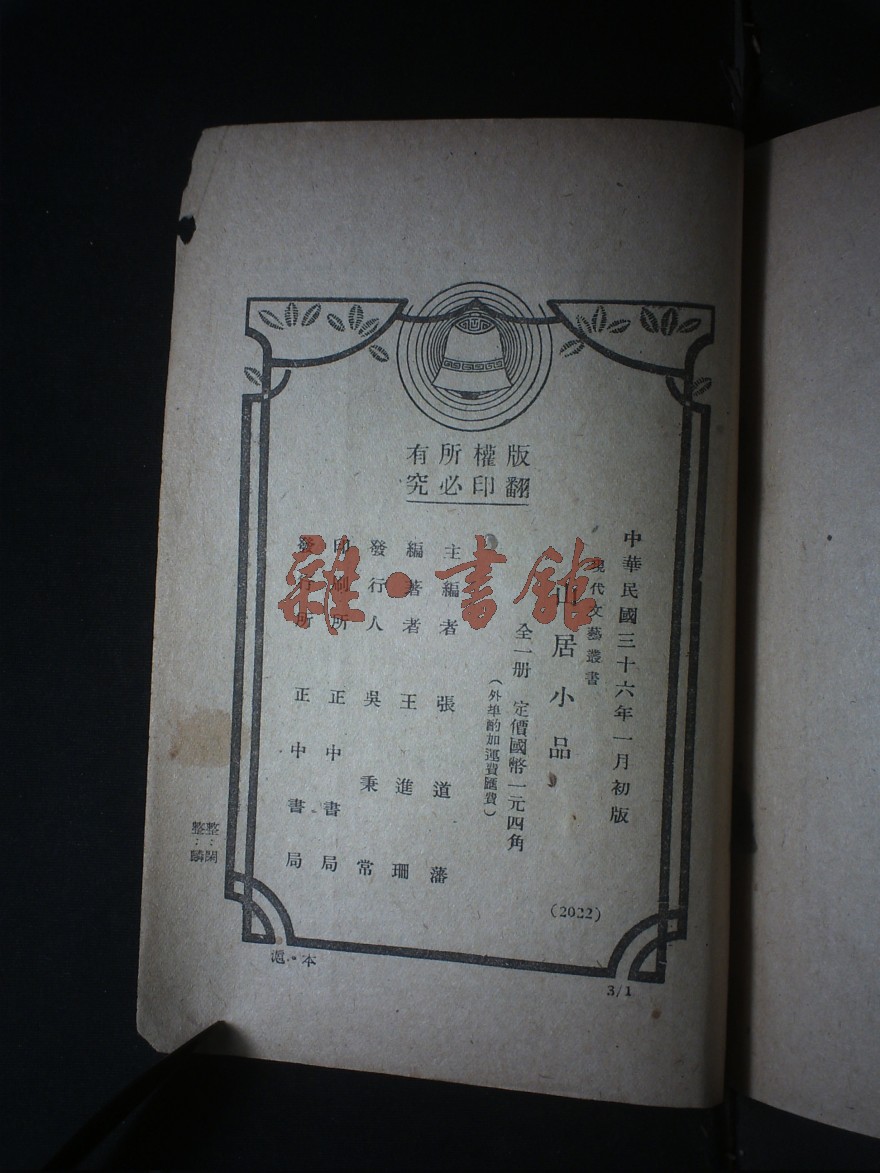 版權所有
翻印必究
中華民國三十六年一月初版
現代文藝叢書
山居小品
全一册 定價國幣一元四角
(外埠酌加運費匯費)
主編者 張道藩
編著者 王進珊
發行人 吳秉常
印刷所 正中書局
發行所 正中書局
(2022)
整:閑
整:麟
滬·本
3/1
雜·書館